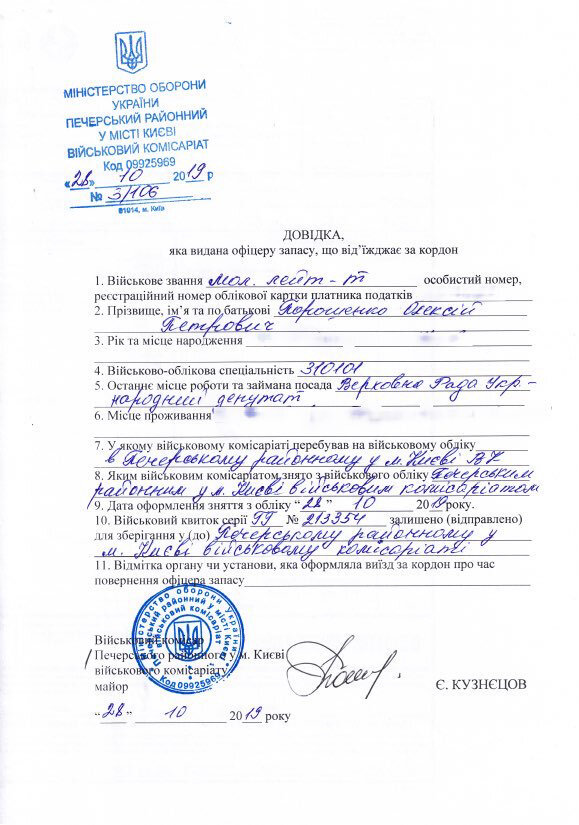 МІНІСТЕРСТВО ОБОРОНИ
УКРАЇНИ
ПЕЧЕРСЬКИЙ РАЙОННИЙ
У МІСТІ КИЄВІ
ВІЙСЬКОВИЙ КОМІСАРІАТ
Код 09925969
«28» 10 2019 р
№ 3/106
01014, м. Київ
ДОВІДКА,
яка видана офіцеру запасу, що від’їжджає за кордон
1. Військове звання мол. лейт-т особистий номер,
реєстраційний номер облікової картки платника податків
2. Прізвище, ім’я та по батькові Порошенко Олексій
Петрович
3. Рік та місце народження
4. Військово-облікова спеціальність 310101
5. Останнє місце роботи та займана посада Верховна Рада Укр-
народний депутат
6. Місце проживання
7. У якому військовому комісаріаті перебував на військовому обліку
в Печерському районному у м. Києві ВК
8. Яким військовим комісаріатом знято з військового обліку Печерським
районним у м. Києві військовим комісаріатом
9. Дата оформлення зняття з обліку “ 28 ” 10 2019 року.
10. Військовий квиток серії ГГ № 213354 залишено (відправлено)
для зберігання у (до) Печерському районному у
м. Києві військовому комісаріаті
11. Відмітка органу чи установи, яка оформляла виїзд за кордон про час
повернення офіцера запасу
Військовий комісар
Печерського районного у м. Києві
військового комісаріату
майор Є. КУЗНЄЦОВ
“28” 10 2019 року
Міністерство оборони України
Печерський районний у місті Києві
військовий комісаріат
Код 09925969